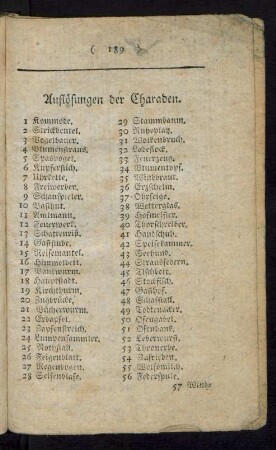 ( 189 )
Auflösungen der Charaden.
1 Kommode.
2 Strickbeutel.
3 Vogelbauer.
4 Blumenstraus.
5 Spasvogel.
6 Kupferstich.
7 Uhrkette.
8 Freiwerber.
9 Schauspieler.
10 Bashut.
11 Amtmann.
12 Feuerwerk.
13 Schattenriß.
14 Gaststube.
15 Reisemantel.
16 Himmelbett.
17 Bandwurm.
18 Hauptstadt.
19 Kirchthurm.
20 Zugbrücke.
21 Bücherwurm.
22 Erdapfel.
23 Zapfenstreich.
24 Lumpensammler.
25 Nothstall.
26 Feigenblatt.
27 Regenbogen.
28 Seifenblase.
29 Stammbaum.
30 Ruheplatz.
31 Wolkenbruch.
32 Lobstock.
33 Feuerzeug.
34 Blumentopf.
35 Windbraut.
36 Erzschelm.
37 Ohrfeige.
38 Wetterglas.
39 Hofmeister.
40 Thorschreiber.
41 Handschuh.
42 Speisekammer.
43 Seehund.
44 Strausfedern.
45 Tischbett.
46 Stockfisch.
47 Gasthof.
48 Schafstall.
49 Todtenacker.
50 Ofengabel.
51 Ofenbank.
52 Leberwurst.
53 Thronerbe.
54 Zafrieden.
55 Wolfsmilch.
56 Federspule.
57 Winds